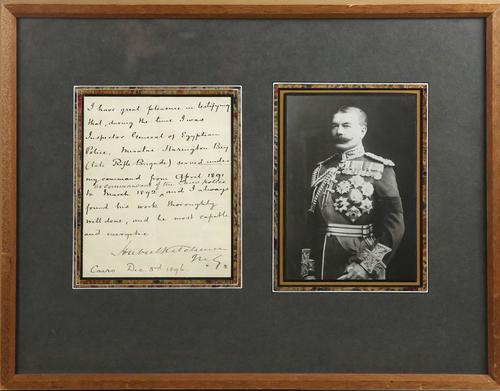 I have great pleasure in testifying
that, during the time I was
Inspector General of Egyptian
Police, Miralai Harington Bey
(late Rifle Brigade) served under
my command from April 1891
as commandant of the Cairo police
to March 1892, and I always
found his work thoroughly
well done, and he most capable
and energetic.
Herbert Kitchener
Cairo Dec 3rd 1896